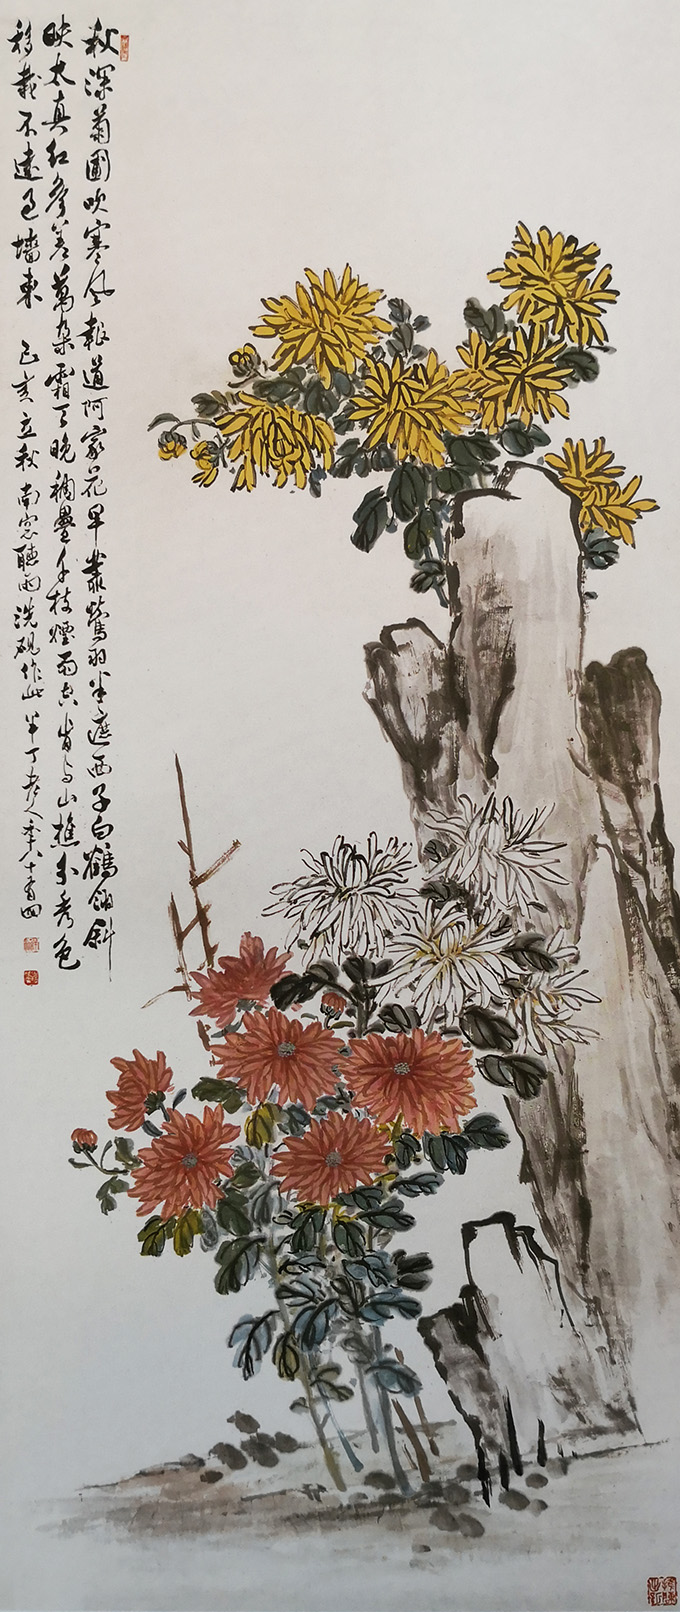 秋深菊圃吹寒风报道阿家花早丛莺羽半遮西子白鹤翎斜
映太真红参差万朵霜天晚稠叠千枝烟雨中肯与山樵分秀色
移栽不远过墙东 己亥立秋南窗听雨洗砚作此半丁老人年八十有四